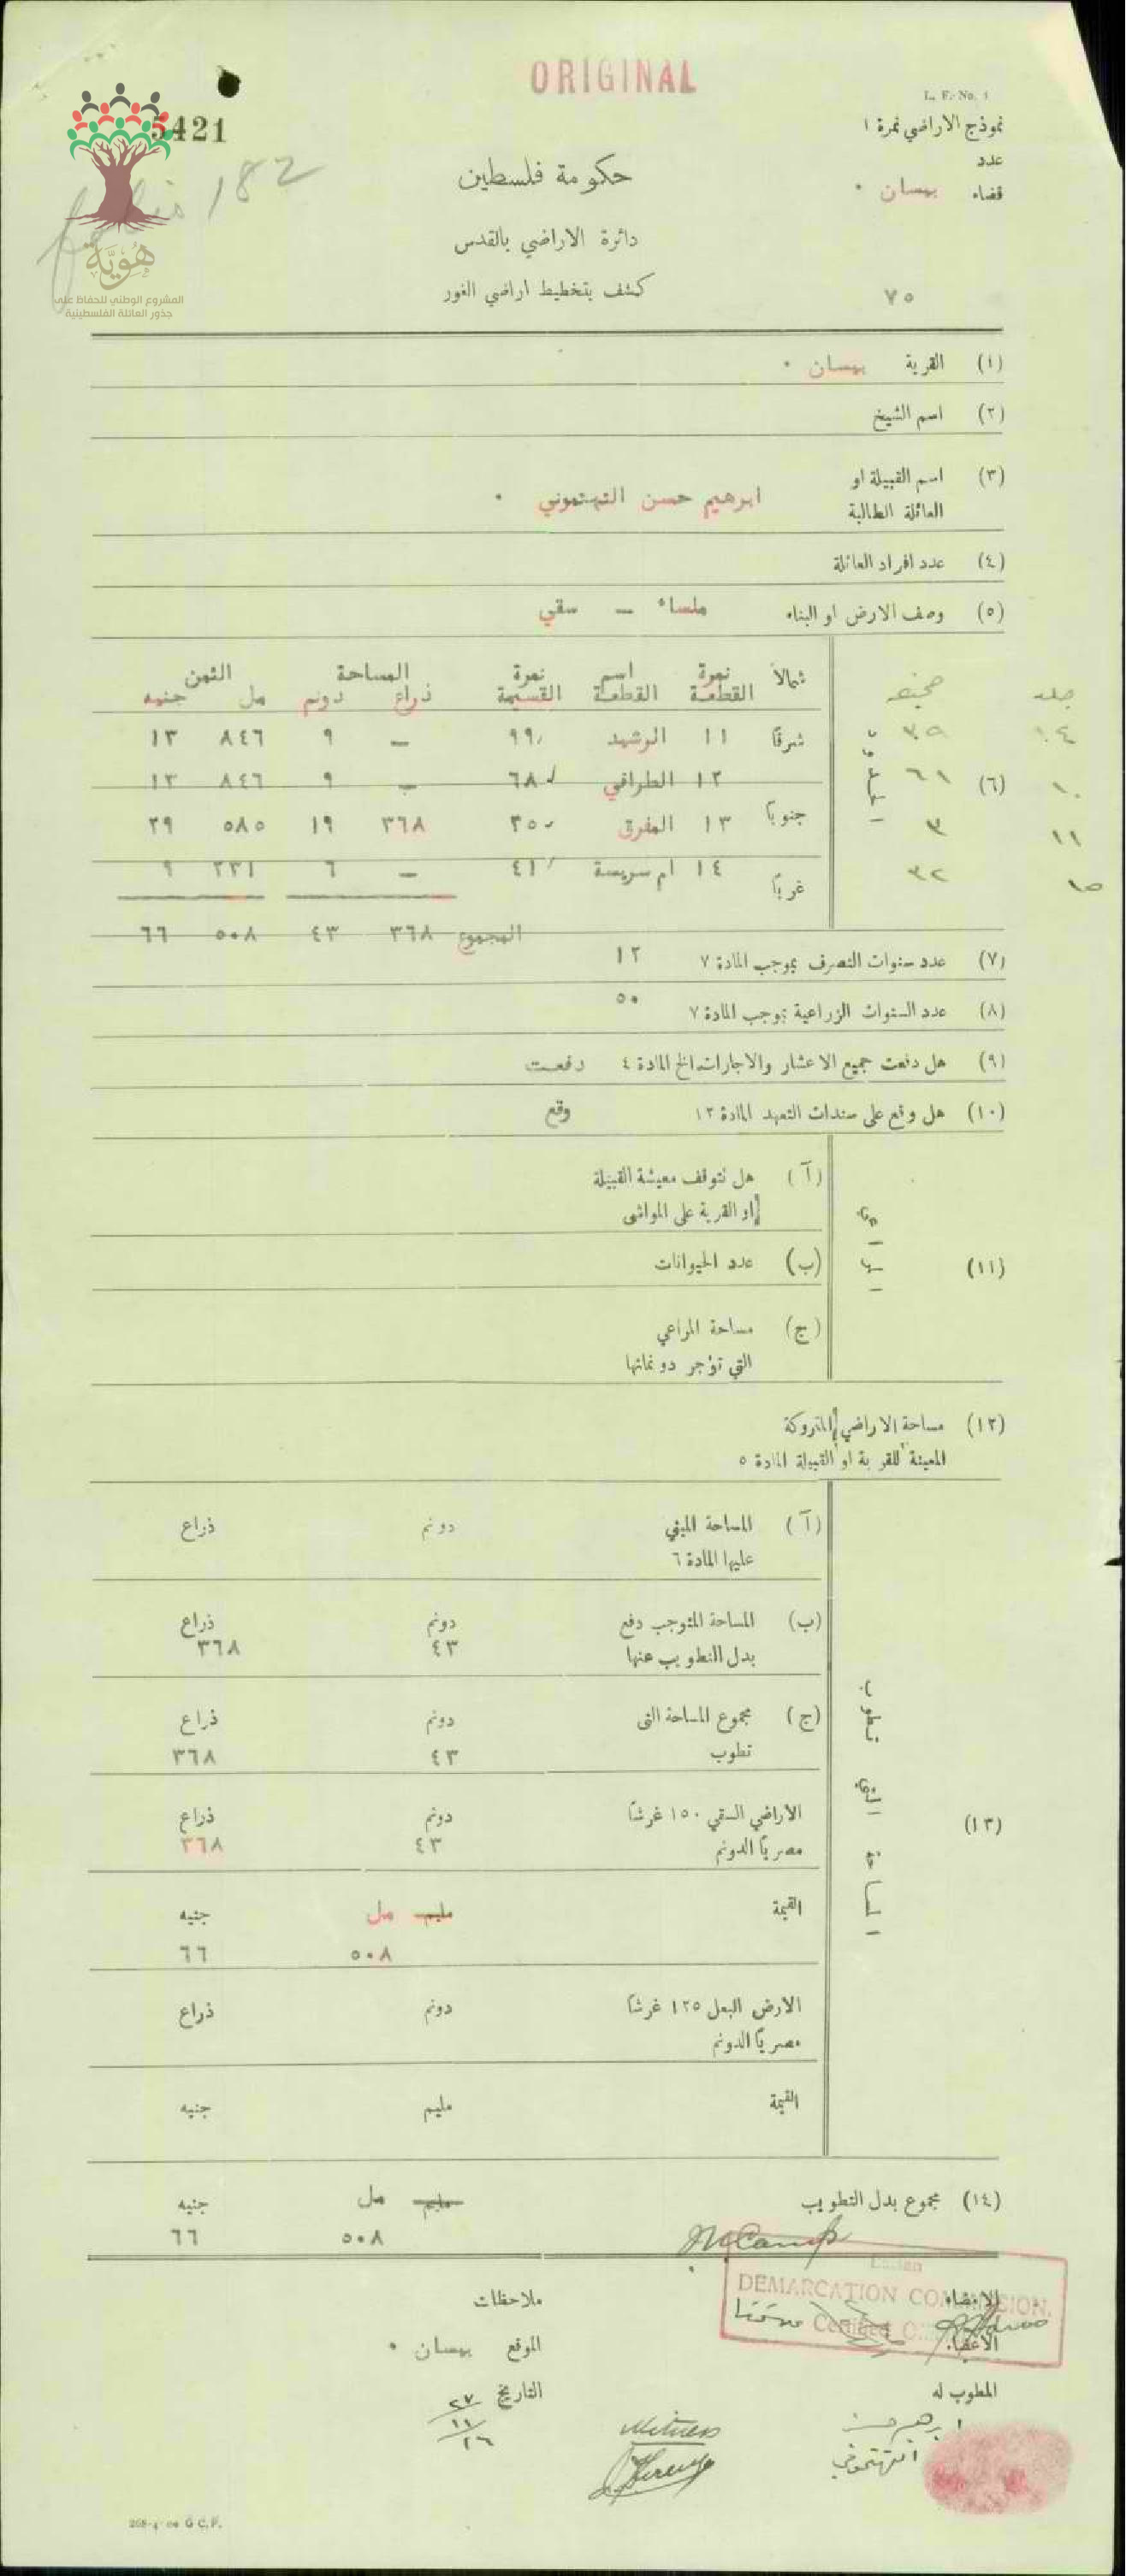 ORIGINAL
L. F.-No. 1
5421
نموذج الاراضي نمرة ١
عدد
folio 182
حكومة فلسطين
قضاء بيسان ٠
دائرة الاراضي بالقدس
كشف بتخطيط اراضي الغور
٧٥
هُوِيَّة
المشروع الوطني للحفاظ على
جذور العائلة الفلسطينية
(١) القرية بيسان ٠
(٢) اسم الشيخ
(٣) اسم القبيلة او
العائلة الطالبة ابرهيم حسن التهتموني ٠
(٤) عدد افراد العائلة
(٥) وصف الارض او البناء ملساء — سقي
جلد صحيفة شمالاً نمرة القطعة اسم القطعة نمرة القسيمة المساحة ذراع دونم الثمن مل جنيه
١٠٤ ٧٩ شرقاً ١١ الرشيد ٩٩ — ٩ ٨٤٦ ١٣
١٠ ٦١ (٦) الحدود ١٢ الطرافي ٦٨ — ٩ ٨٤٦ ١٣
١١ ٣ جنوباً ١٣ المفرق ٣٥٠ ٣٦٨ ١٩ ٥٨٥ ٢٩
١٥ ٣٢ غرباً ١٤ ام سريسة ٤١ — ٦ ٢٣١ ٩
المجموع ٣٦٨ ٤٣ ٥٠٨ ٦٦
(٧) عدد سنوات التصرف بموجب المادة ٧ ١٢
(٨) عدد السنوات الزراعية بموجب المادة ٧ ٥٠
(٩) هل دفعت جميع الاعشار والاجارات الخ المادة ٤ دفعت
(١٠) هل وقع على سندات التعهد المادة ١٣ وقع
(١١) المراعي
(آ) هل تتوقف معيشة القبيلة
او القرية على المواشي
(ب) عدد الحيوانات
(ج) مساحة المراعي
التي تؤجر دونماتها
(١٢) مساحة الاراضي المتروكة
المعينة للقرية او القبيلة المادة ٥
(١٣) المساحة التي تطوب
(آ) المساحة المبني دونم ذراع
عليها المادة ٦
(ب) المساحة المتوجب دفع دونم ذراع
بدل التطويب عنها ٤٣ ٣٦٨
(ج) مجموع المساحة التي دونم ذراع
تطوب ٤٣ ٣٦٨
الاراضي السقي ١٥٠ غرشاً دونم ذراع
مصرياً الدونم ٤٣ ٣٦٨
القيمة مليم مل جنيه
٥٠٨ ٦٦
الارض البعل ١٢٥ غرشاً دونم ذراع
مصرياً الدونم
القيمة مليم جنيه
(١٤) مجموع بدل التطويب مليم مل جنيه
٥٠٨ ٦٦
DEMARCATION COMMISSION.
Certified
الامضاء ملاحظات
الاعضاء الموقع بيسان ٠
المطوب له التاريخ ٢٧/١١/٢٦
ابرهيم حسن
التهتموني
Witness
268-4-04 G C.P.